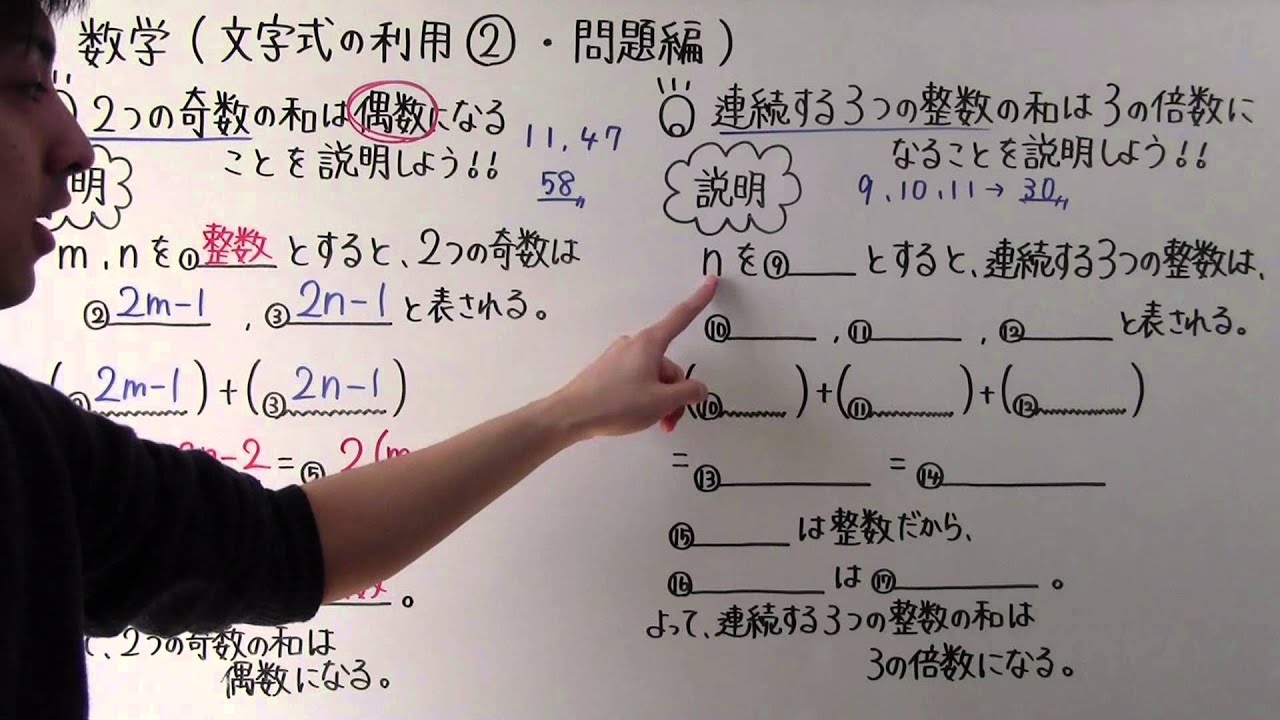 数学(文字式の利用②・問題編)
2つの奇数の和は偶数になる
ことを説明しよう!!
11,47
58〃
明
m,nを①整数とすると、2つの奇数は
②2m-1,③2n-1と表される。
(2m-1)+(③2n-1)
n-2=⑤2(m
数。
、2つの奇数の和は
偶数になる。
連続する3つの整数の和は3の倍数に
なることを説明しよう!!
説明
9,10,11→30〃
nを⑨____とすると、連続する3つの整数は、
⑩____,⑪____,⑫____と表される。
(⑩____)+(⑪____)+(⑫____)
=⑬____=⑭____
⑮____は整数だから、
⑯____は⑰____。
よって、連続する3つの整数の和は
3の倍数になる。